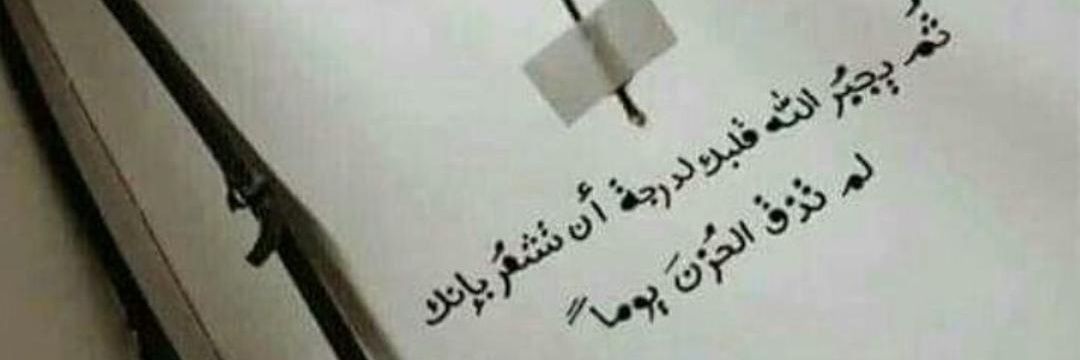 ثُم يجبُر الله قلبك لدرجة أن تشعُر بإنك
لم تذق الحُزنَ يوماً